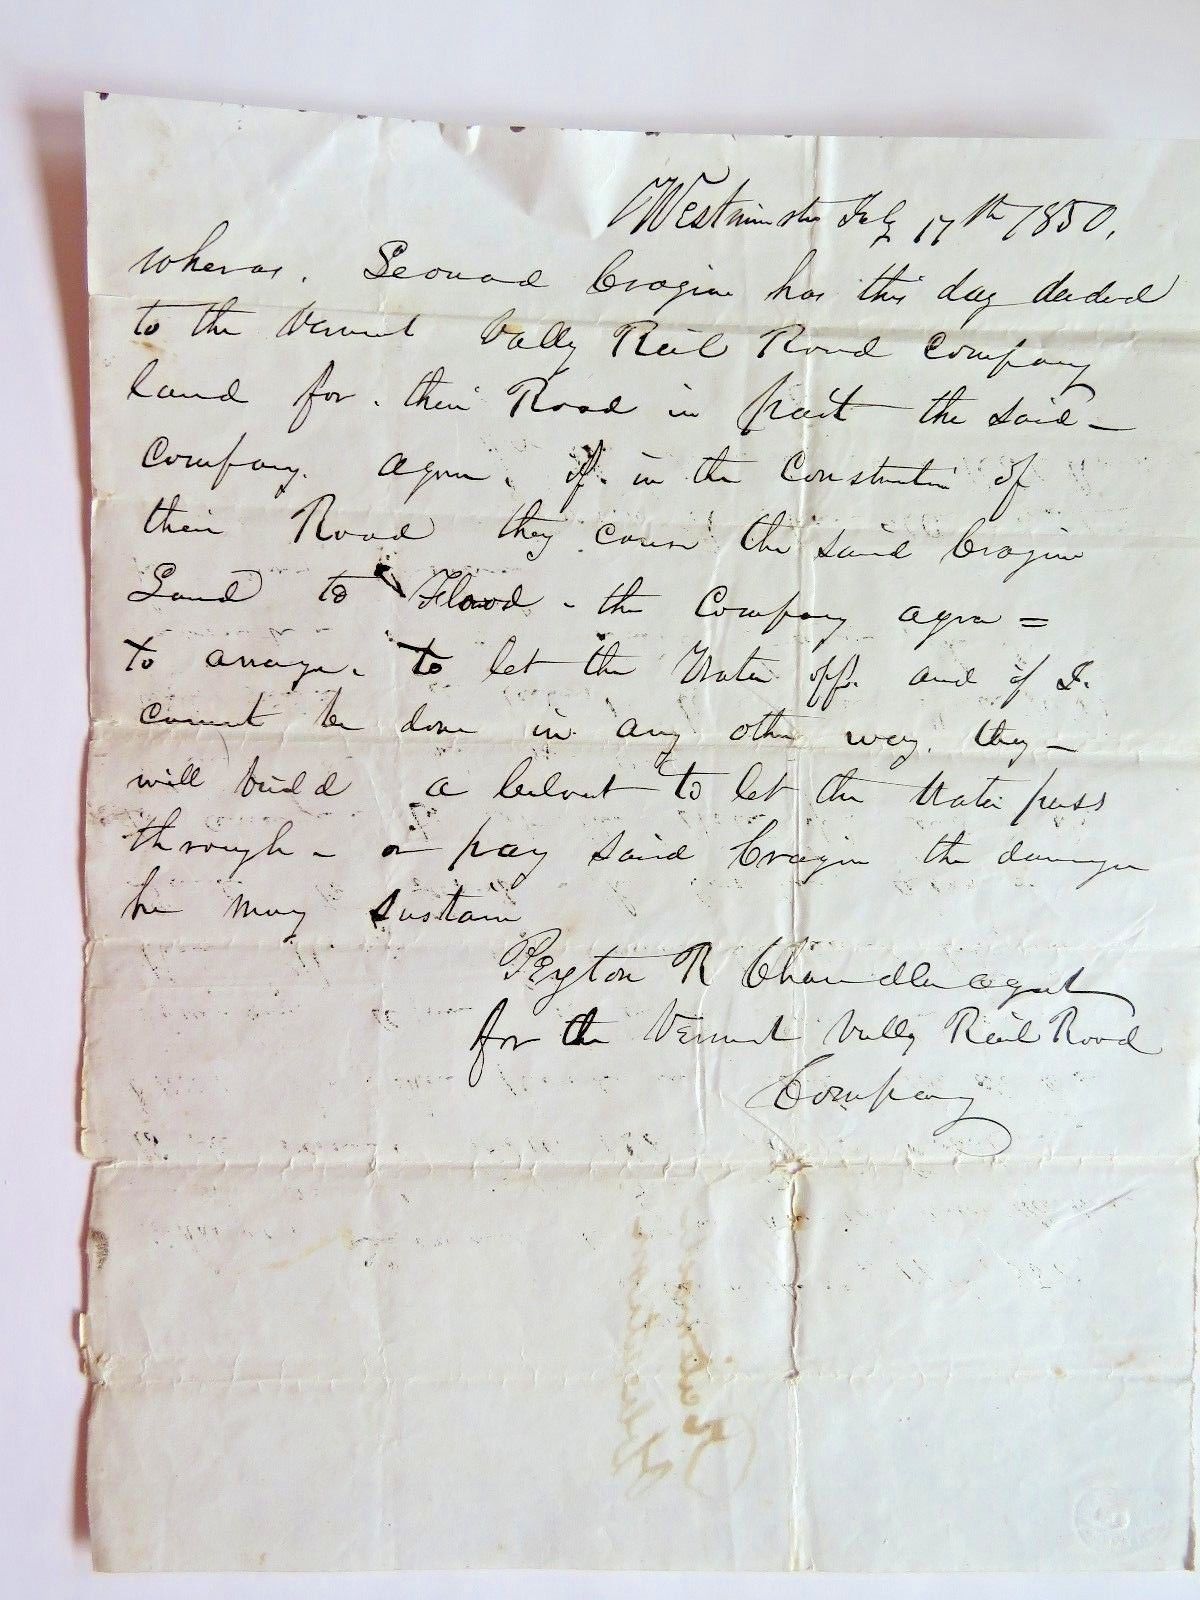 Westminster Feb 17th 1850,
wheras. Leonard Cragin has this day deded
to the Vermont Vally Rail Road Company
land for. their Road in part the said -
Company. agree. if. in the Construction of
their Road they cause the said Cragin
Land to Flood - the Company agree =
to arrange. to let the Water off. and if I.
cannot be done in any other way. they -
will build a Culvert to let the Water pass
through - or pay said Cragin the damage
he may sustain
Peyton R Chandler agent
for the Vermont Vally Rail Road
Company